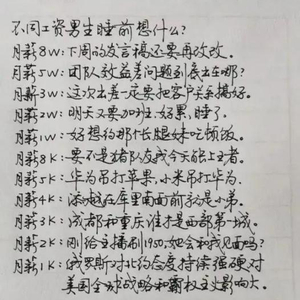 不同工资男生睡前想什么?
月薪8W:下周的发言稿还要再改改。
月薪5W:团队效益差问题到底出在哪?
月薪3W:这次出差一定要把客户关系搞好。
月薪2W:明天又要加班,好累,睡了。
月薪1W:好想约那个长腿妹吃顿饭。
月薪8K:要不是猪队友我今天能上王者。
月薪5K:华为吊打苹果,小米吊打华为.
月薪4K:添越在库里南面前就是小弟。
月薪3K:成都和重庆谁才是西部第一城。
月薪2K:刚给主播刷1950,她会和我见面吗?
月薪1K:俄罗斯对北约态度持续强硬对
美国全球战略和霸权主义影响大。